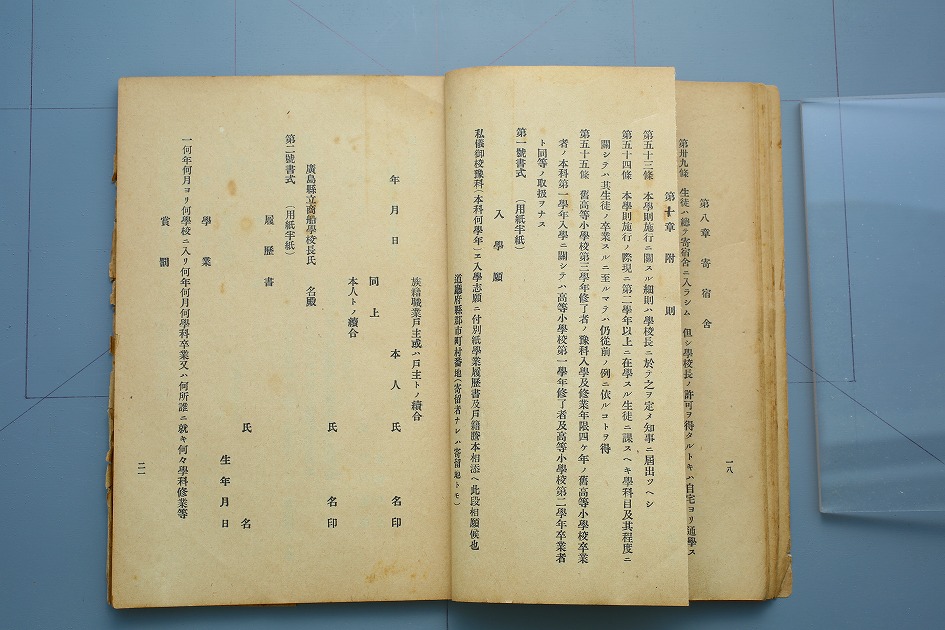 第八章 寄宿舍
第卅九條 生徒ハ總テ寄宿舍ニ入ラシム 但シ學校長ノ許可ヲ得タルトキハ自宅ヨリ通學ス
一八
第十章 附則
第五十三條 本學則施行ニ關スル細則ハ學校長ニ於テ之ヲ定メ知事ニ屆出ツヘシ
第五十四條 本學則施行ノ際現ニ第二學年以上ニ在學スル生徒ニ課スヘキ學科目及其程度ニ
關シテハ其生徒ノ卒業スルニ至ルマテハ仍從前ノ例ニ依ルコトヲ得
第五十五條 舊高等小學校第三學年修了者ノ豫科入學及修業年限四ケ年ノ舊高等小學校卒業
者ノ本科第一學年入學ニ關シテハ高等小學校第一學年修了者及高等小學校第二學年卒業者
ト同等ノ取扱ヲナス
第一號書式 (用紙半紙)
入學願
私儀御校豫科(本科何學年)ヱ入學志願ニ付別紙學業履歷書及戶籍謄本相添ヘ此段相願候也
道廳府縣郡市町村番地(寄留者ナレハ寄留地トモ)
族籍職業戶主或ハ戶主トノ續合
年月日 本人 氏名印
同上
本人トノ續合
氏名印
廣島縣立商船學校長氏 名殿
第二號書式 (用紙半紙)
履歷書
氏名
生年月日
學業
一何年何月ヨリ何學校ニ入リ何年何月何學科卒業又ハ何所誰ニ就キ何々學科修業等
賞罰
二一